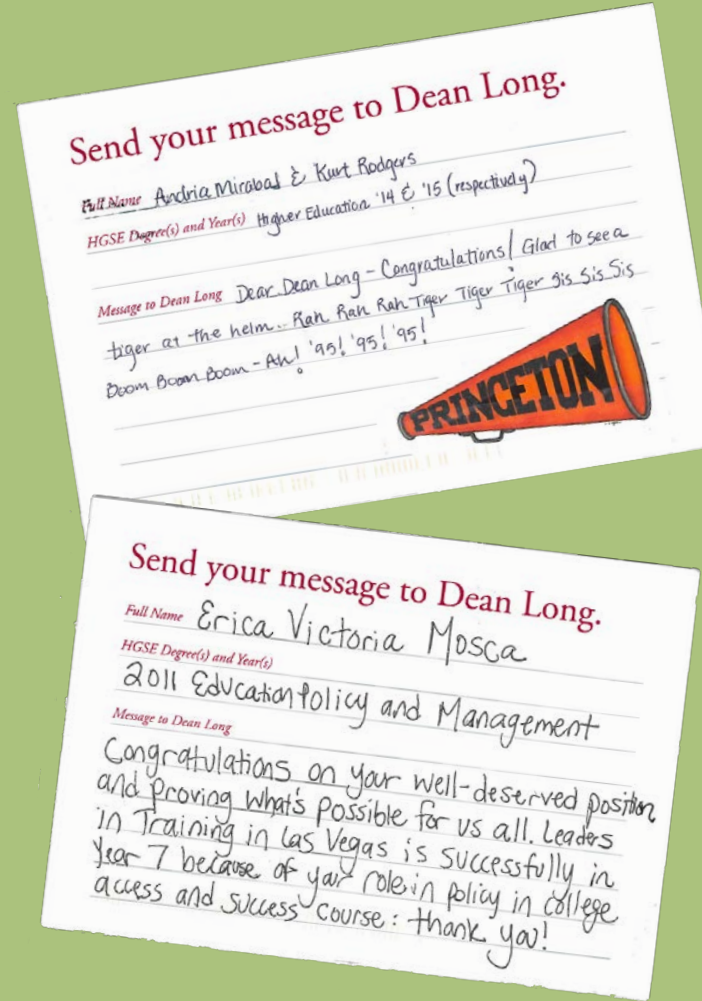 Send your message to Dean Long.
Full Name Andria Mirabal & Kurt Rodgers
HGSE Degree(s) and Year(s) Higher Education '14 & '15 (respectively)
Message to Dean Long Dear Dean Long - Congratulations! Glad to see a
tiger at the helm.. Rah Rah Rah Tiger Tiger Tiger Sis Sis Sis
Boom Boom Boom - Ah! '95! '95! '95!
PRINCETON
Send your message to Dean Long.
Full Name Erica Victoria Mosca
HGSE Degree(s) and Year(s)
2011 Education Policy and Management
Message to Dean Long
Congratulations on your well-deserved position
and proving what's possible for us all. Leaders
in Training in Las Vegas is successfully in
Year 7 because of your role in policy in college
access and success course: thank you!